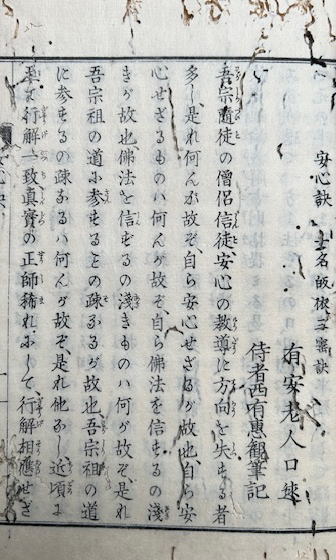 安心訣 一名皈依三寶訣
有安老人口述
侍者西有惠觀筆記
吾宗隨徒の僧侶信徒安心の教導に方向を失する者
多し是れ何んが故ぞ自ら安心せざるが故也自ら安
心せざるものハ何んが故ぞ、自ら佛法を信ずるの淺
きが故也佛法を信ずるの淺きものハ何が故ぞ是れ
吾宗祖の道に参ずることの疎なるが故也吾宗祖の道
に参ずるの疎なるハ何んが故ぞ是れ他なし近頃に
至て行解一致真實の正師稀れにして、行解相應せざ